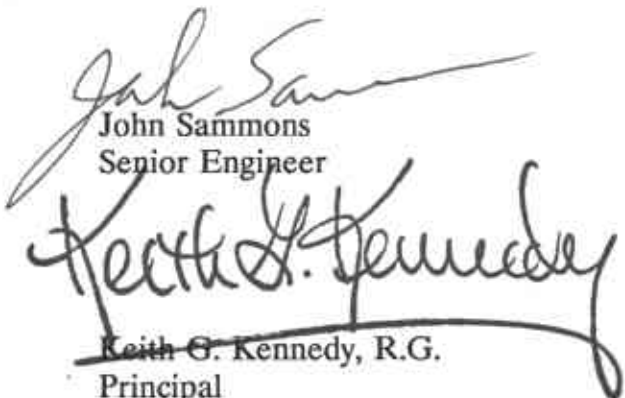 John Sammons
John Sammons
Senior Engineer
Keith G. Kennedy
Keith G. Kennedy, R.G.
Principal